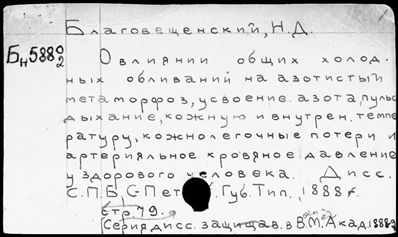 Благовещенский, Н.Д.
Бн 5880/2
О влиянии общих холод-
ных обливаний на азотистый
метаморфоз, усвоение азота, пульс
дыхание, кожную и внутрен. темпе
ратуру, кожнолегочные потери и
артериальное кровяное давление
у здорового человека. Дисс.
С.П.Б. Губ. Тип., 1888 г.
стр. 79.
Серия дисс. защищав. в В.М. Акад. 1888